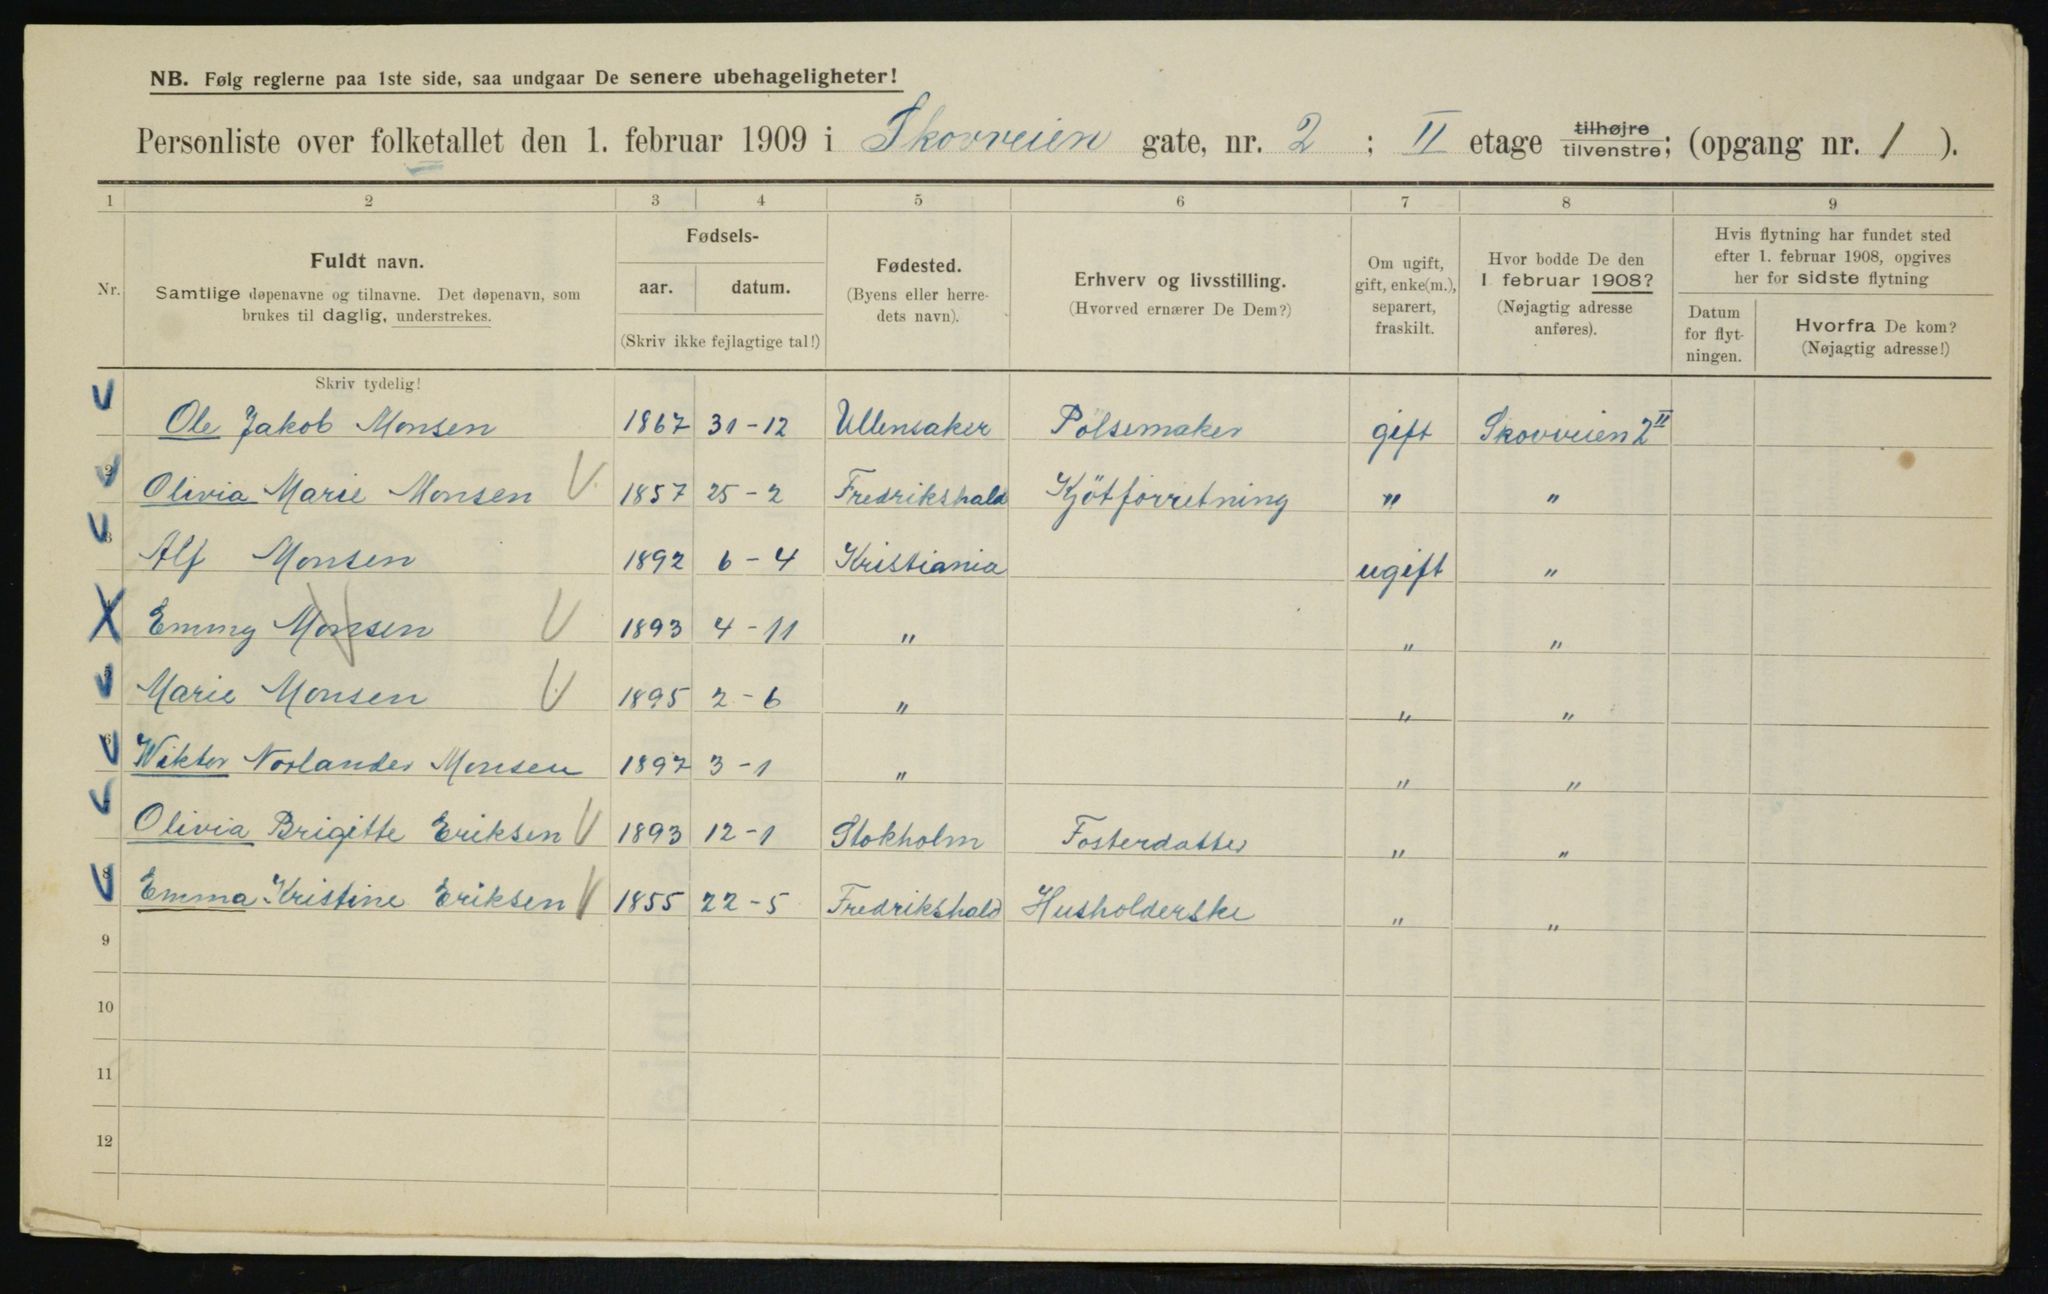 NB. Følg reglerne paa 1ste side, saa undgaar De senere ubehageligheter!
Personliste over folketallet den 1. februar 1909 i Skovveien gate, nr. 2 ; II etage tilhøjre tilvenstre; (opgang nr. 1 ).
1 2 3 4 5 6 7 8 9
Nr.
Fuldt navn.
Samtlige døpenavne og tilnavne. Det døpenavn, som
brukes til daglig, understrekes.
Skriv tydelig!
Fødsels-
aar. datum.
(Skriv ikke fejlagtige tal!)
Fødested.
(Byens eller herre-
dets navn).
Erhverv og livsstilling.
(Hvorved ernærer De Dem?)
Om ugift,
gift, enke(m.),
separert,
fraskilt.
Hvor bodde De den
1 februar 1908?
(Nøjagtig adresse
anføres).
Hvis flytning har fundet sted
efter 1. februar 1908, opgives
her for sidste flytning
Datum
for flyt-
ningen.
Hvorfra De kom?
(Nøjagtig adresse!)
Ole Jakob Monsen 1867 31-12 Ullensaker Pölsemaker gift Skovveien 2 II
2 Olivia Marie Monsen 1857 25-2 Fredrikshald Kjötforretning " "
3 Alf Monsen 1892 6-4 Kristiania ugift "
Emmy Monsen 1893 4-11 " " "
5 Marie Monsen 1895 2-6 " " "
6 Wiktor Norlander Monsen 1897 3-1 " " "
Olivia Brigitte Eriksen 1893 12-1 Stokholm Fosterdatter " "
8 Emma Kristine Eriksen 1855 22-5 Fredrikshald Husholderske " "
9
10
11
12